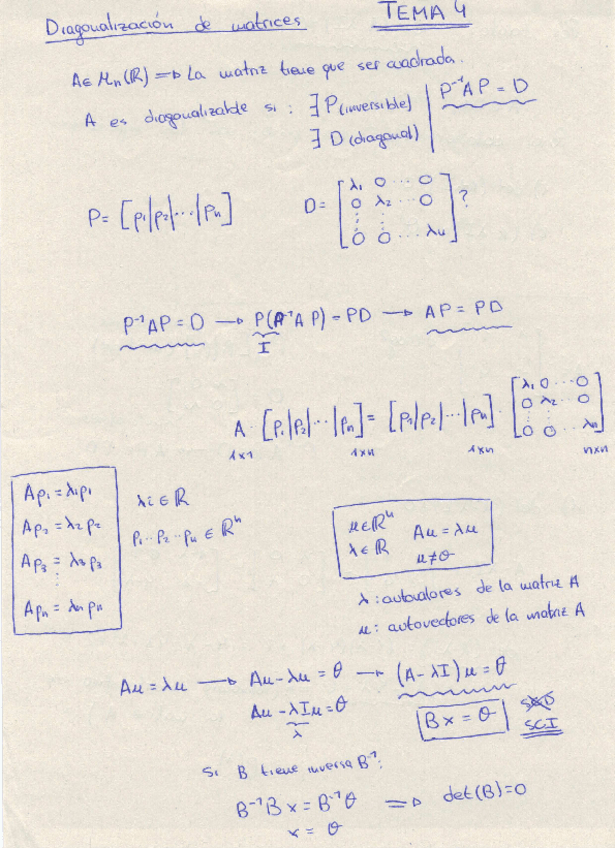 Diagonalización de matrices TEMA 4
A ∈ Mn(ℝ) ⇒ La matriz tiene que ser cuadrada.
A es diagonalizable si : ∃ P (inversible) | P⁻¹AP = D
∃ D (diagonal)
P = [p₁|p₂|···|pn] D = [λ₁ 0 ··· 0
0 λ₂ ··· 0
⋮ ⋮
0 0 ··· λn] ?
P⁻¹AP = D → P(P⁻¹AP) = PD → AP = PD
I
A · [p₁|p₂|···|pn] = [p₁|p₂|···|pn] · [λ₁ 0 ··· 0
0 λ₂ ··· 0
⋮ ⋮
0 0 ··· λn]
1x1 1xn 1xn nxn
Ap₁ = λ₁p₁
Ap₂ = λ₂p₂
Ap₃ = λ₃p₃
⋮
Apn = λnpn
λi ∈ ℝ
p₁··p₂··pn ∈ ℝⁿ
u ∈ ℝⁿ Au = λu
λ ∈ ℝ u ≠ θ
λ : autovalores de la matriz A
u : autovectores de la matriz A
Au = λu → Au - λu = θ → (A - λI)u = θ
Au - λIu = θ
λ
Bx = θ SCD
SCI
Si B tiene inversa B⁻¹:
B⁻¹Bx = B⁻¹θ ⇒ det(B) = 0
x = θ